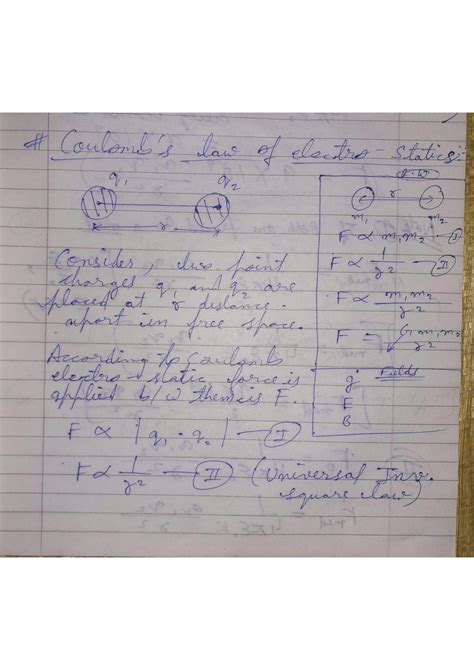 # Coulomb's law of electro-Statics:
q₁ q₂
r
Consider, two point
charges q₁ and q₂ are
placed at r distance
apart in free space.
According to Coulomb's
electro-static force is
applied b/w them is F.
F ∝ |q₁·q₂| — I
F ∝ 1/r² — II (Universal Inv.
square law)
r
m₁ m₂
F ∝ m₁m₂ — I
F ∝ 1/r² — II
F ∝ m₁m₂/r²
F = Gm₁m₂/r²
Fields
g
E
B